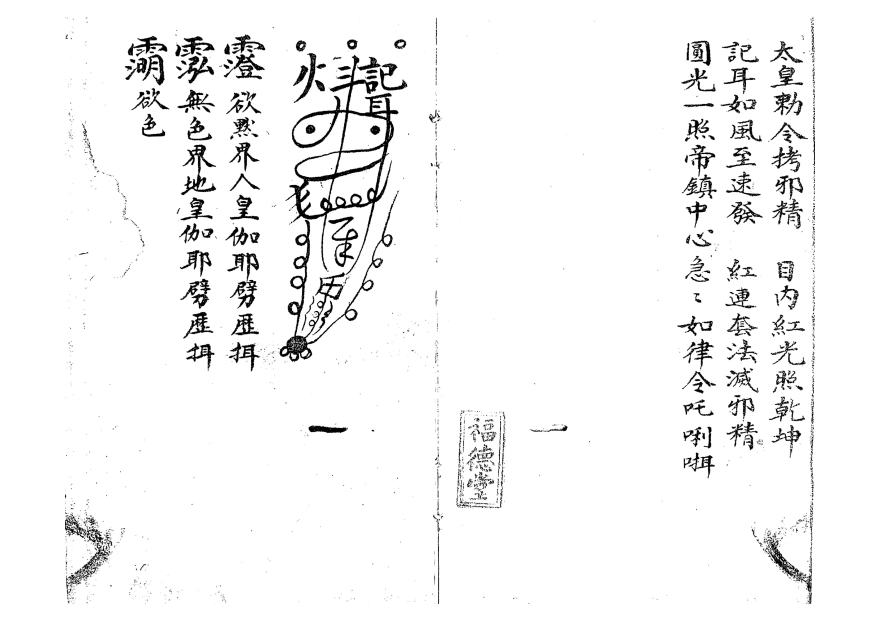 太皇勅令拷邪精　目內紅光照乾坤
記耳如風至速發　紅連套法滅邪精
圓光一照帝鎮中心急〻如律令吒唎㖇
一
福德堂
記耳
火
一
欲點界人皇伽耶劈歷挕
無色界地皇伽耶劈歷挕
欲色